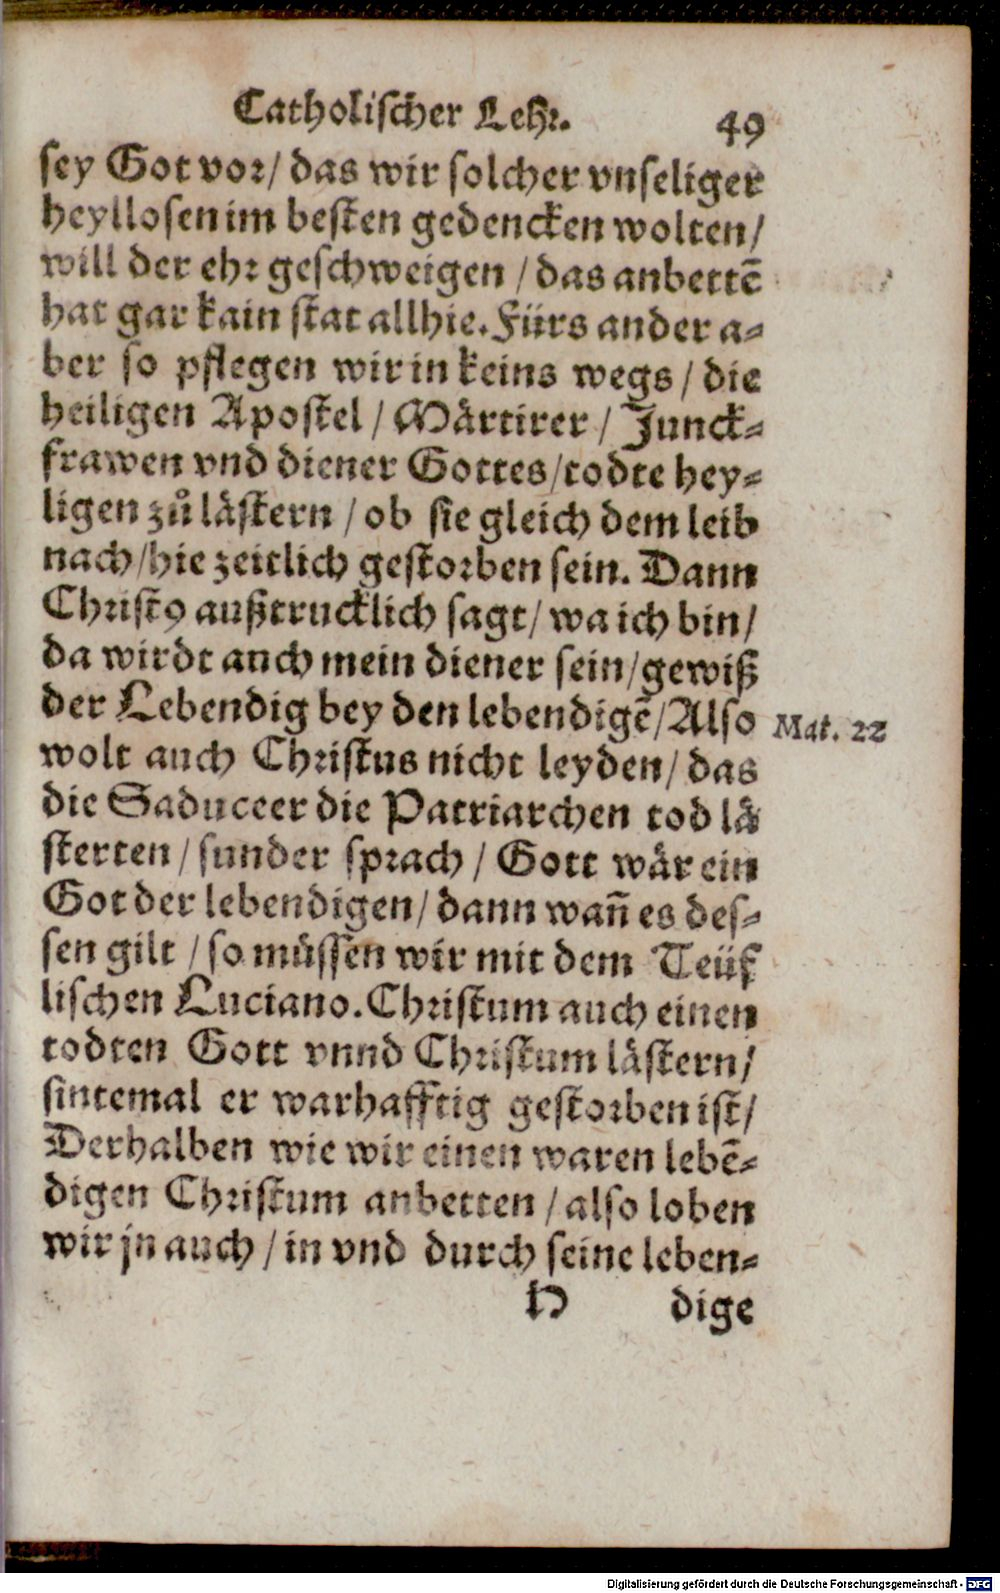 Catholischer Lehr. 49
sey Got vor/ das wir solcher vnseliger
heyllosen im besten gedencken wolten/
will der ehr geschweigen / das anbettē
hat gar kain stat allhie. Fürs ander a-
ber so pflegen wir in keins wegs / die
heiligen Apostel / Märtirer / Junck-
frawen vnd diener Gottes/todte hey-
ligen zů lästern / ob sie gleich dem leib
nach/hie zeitlich gestorben sein. Dann
Christꝰ außtrucklich sagt/ wa ich bin/
da wirdt auch mein diener sein/gewiß
der Lebendig bey den lebendigē/Also
Mat. 22
wolt auch Christus nicht leyden/ das
die Saduceer die Patriarchen tod lä
sterten / sunder sprach / Gott wär ein
Got der lebendigen/ dann wañ es des-
sen gilt / so müssen wir mit dem Teüf
lischen Luciano. Christum auch einen
todten Gott vnnd Christum lästern/
sintemal er warhafftig gestorben ist/
Derhalben wie wir einen waren lebē-
digen Christum anbetten / also loben
wir jn auch / in vnd durch seine leben-
H dige
Digitalisierung gefördert durch die Deutsche Forschungsgemeinschaft - DFG